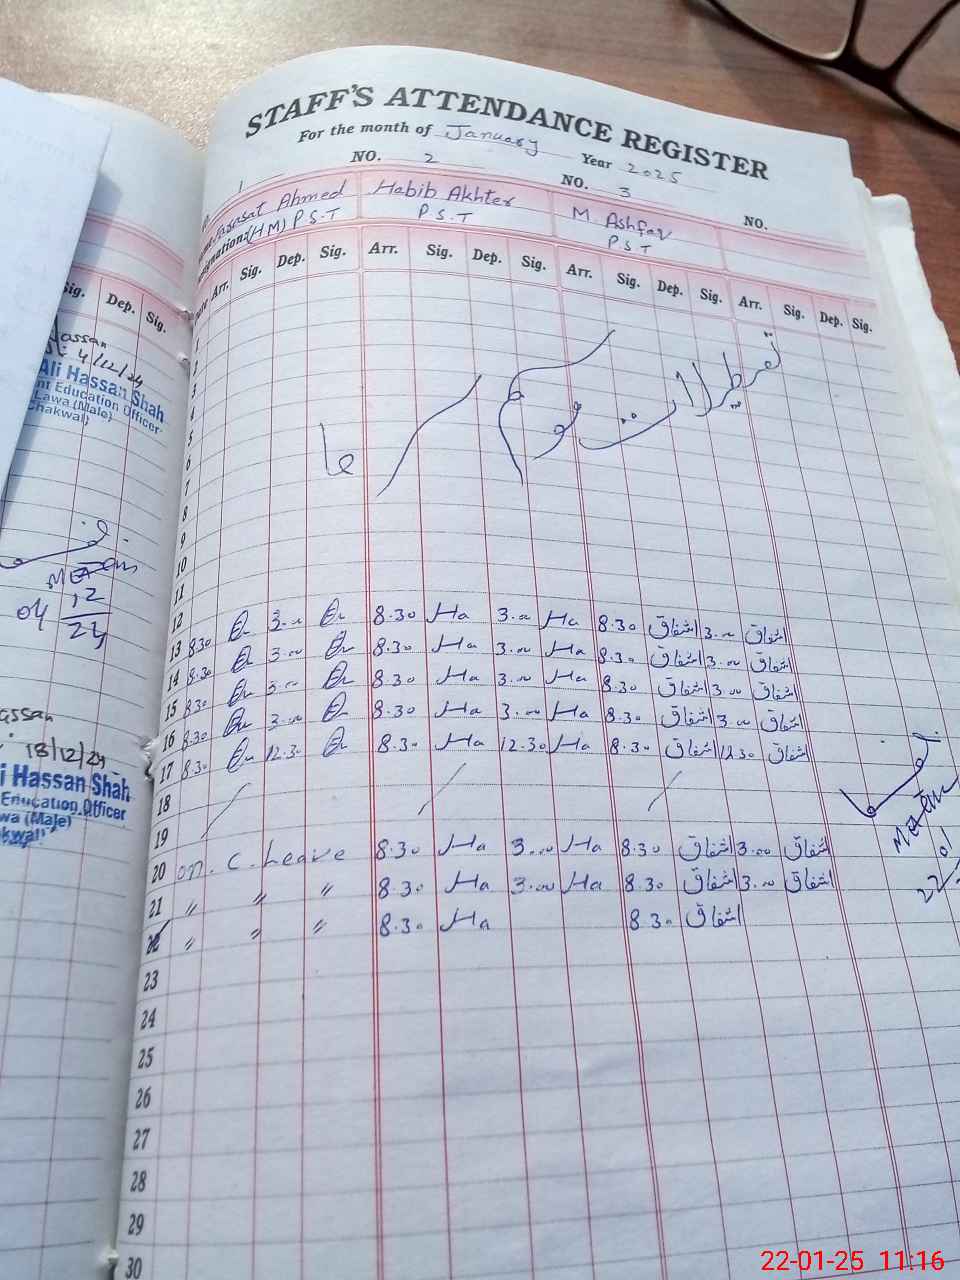 STAFF'S ATTENDANCE REGISTER
For the month of January Year 2025
1 NO. 2 NO. 3 NO.
Ahmed Habib Akhter M. Ashfaq
(HM) P.S.T P.S.T P S T
Arr. Sig. Dep. Sig. Arr. Sig. Dep. Sig. Arr. Sig. Dep. Sig. Arr. Sig. Dep. Sig.
1
2
3
4
5
6
7
8
9
10
11
12
تعطیلات موسم سرما
13 8.30 3.00 8.30 Ha 3.00 Ha 8.30 اشفاق 3.00 اشفاق
14 8.30 3.00 8.30 Ha 3.00 Ha 8.30 اشفاق 3.00 اشفاق
15 8.30 3.00 8.30 Ha 3.00 Ha 8.30 اشفاق 3.00 اشفاق
16 8.30 3.00 8.30 Ha 3.00 Ha 8.30 اشفاق 3.00 اشفاق
17 8.30 12.30 8.30 Ha 12.30 Ha 8.30 اشفاق 12.30 اشفاق
18
19
20 on C. Leave 8.30 Ha 3.00 Ha 8.30 اشفاق 3.00 اشفاق
21 " " " 8.30 Ha 3.00 Ha 8.30 اشفاق 3.00 اشفاق
22 " " " 8.30 Ha 8.30 اشفاق
23
24
25
26
27
28
29
30
Sig. Dep. Sig.
Hassan
4/12/24
Ali Hassan Shah
nt Education Officer
Lawa (Male)
Chakwal)
04 12
24
assan
18/12/24
i Hassan Shah
Education Officer
wa (Male)
kwal)
22 01
22-01-25 11:16